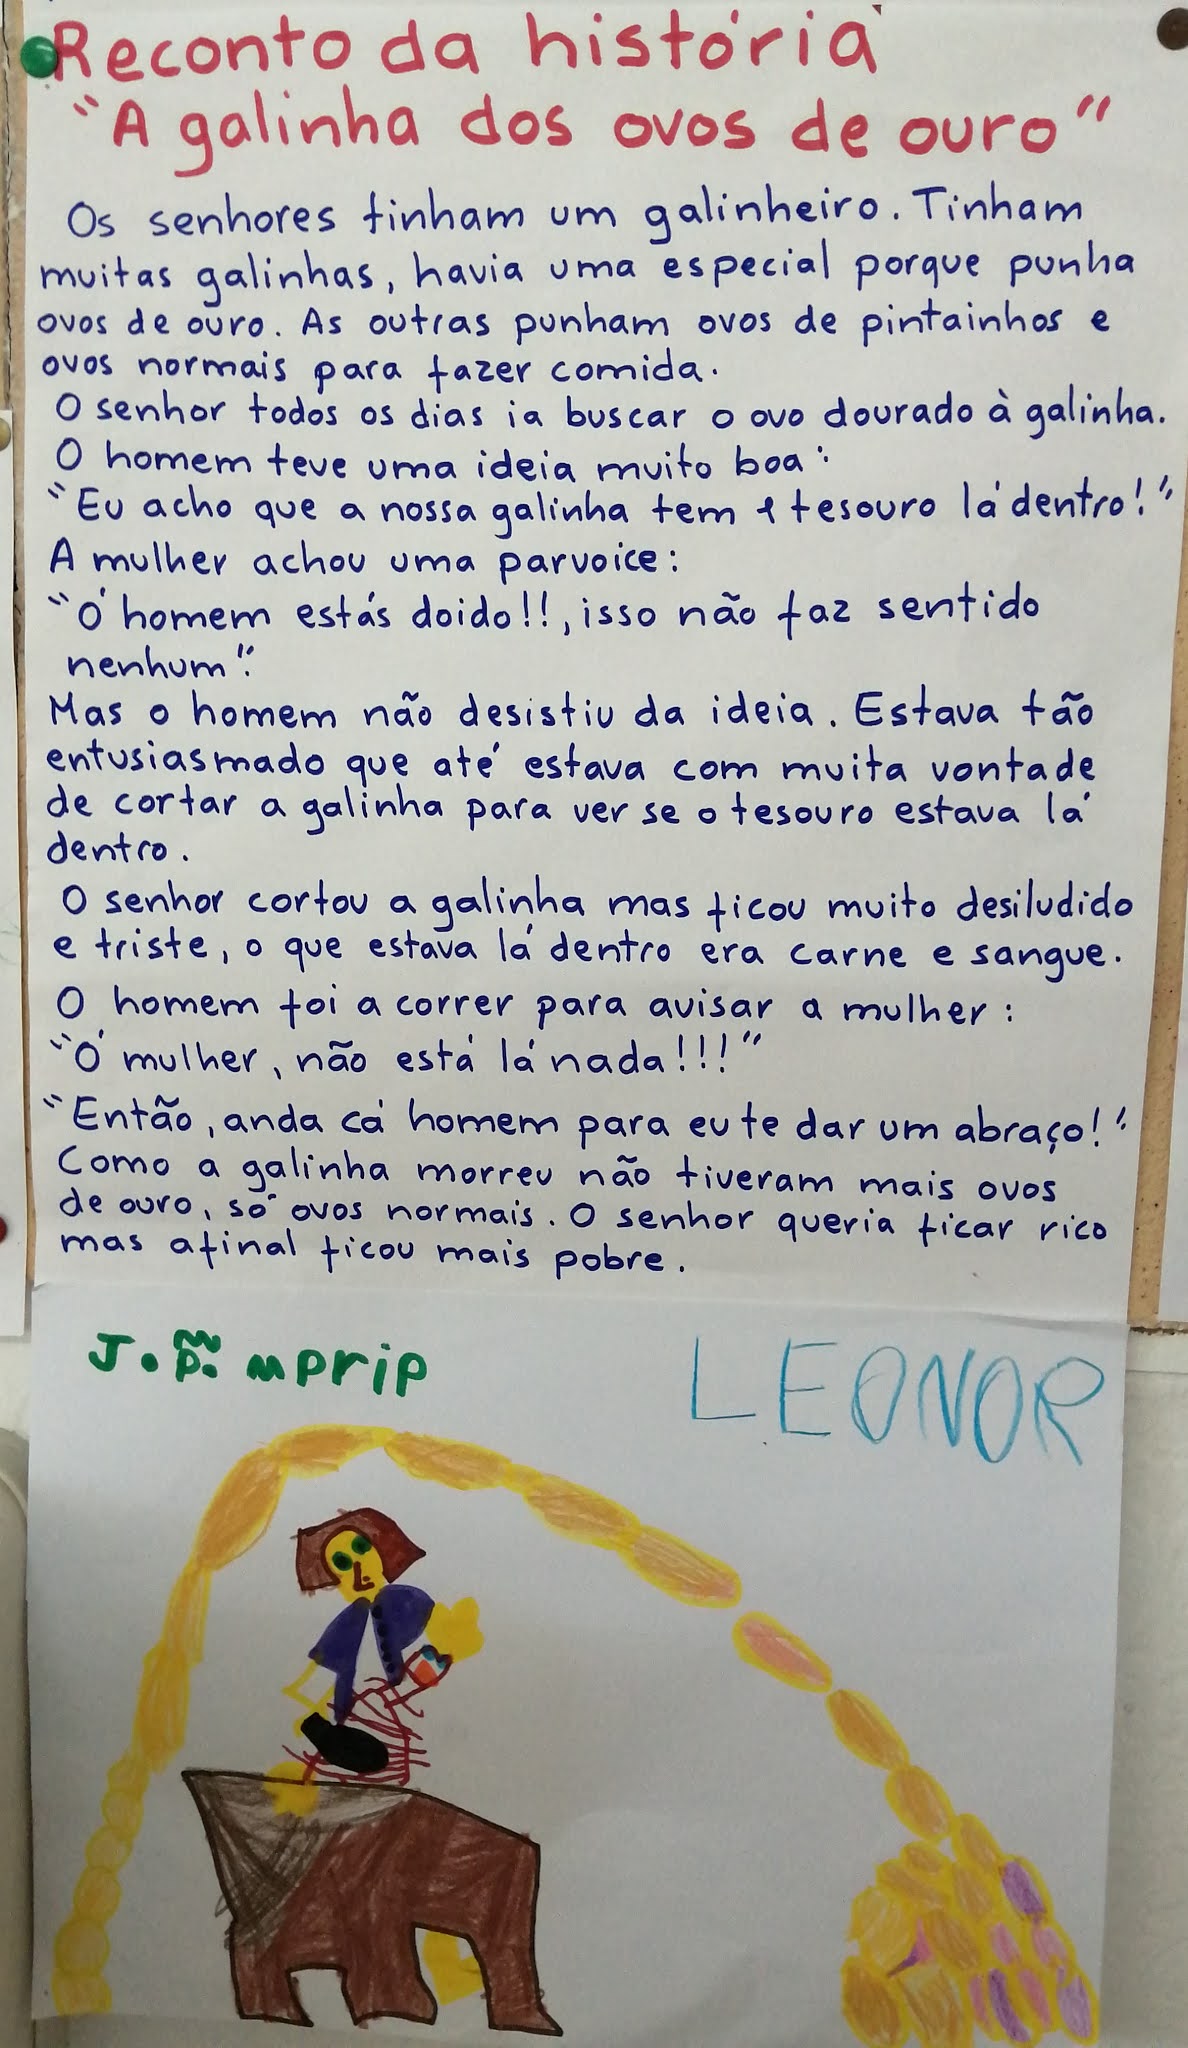 Reconto da história
"A galinha dos ovos de ouro"
Os senhores tinham um galinheiro. Tinham
muitas galinhas, havia uma especial porque punha
ovos de ouro. As outras punham ovos de pintainhos e
ovos normais para fazer comida.
O senhor todos os dias ia buscar o ovo dourado à galinha.
O homem teve uma ideia muito boa:
"Eu acho que a nossa galinha tem 1 tesouro lá dentro!"
A mulher achou uma parvoice:
"Ó homem estás doido!!, isso não faz sentido
nenhum".
Mas o homem não desistiu da ideia. Estava tão
entusiasmado que até estava com muita vontade
de cortar a galinha para ver se o tesouro estava lá
dentro.
O senhor cortou a galinha mas ficou muito desiludido
e triste, o que estava lá dentro era carne e sangue.
O homem foi a correr para avisar a mulher:
"Ó mulher, não está lá nada!!!"
"Então, anda cá homem para eu te dar um abraço!"
Como a galinha morreu não tiveram mais ovos
de ouro, só ovos normais. O senhor queria ficar rico
mas afinal ficou mais pobre.
LEONOR